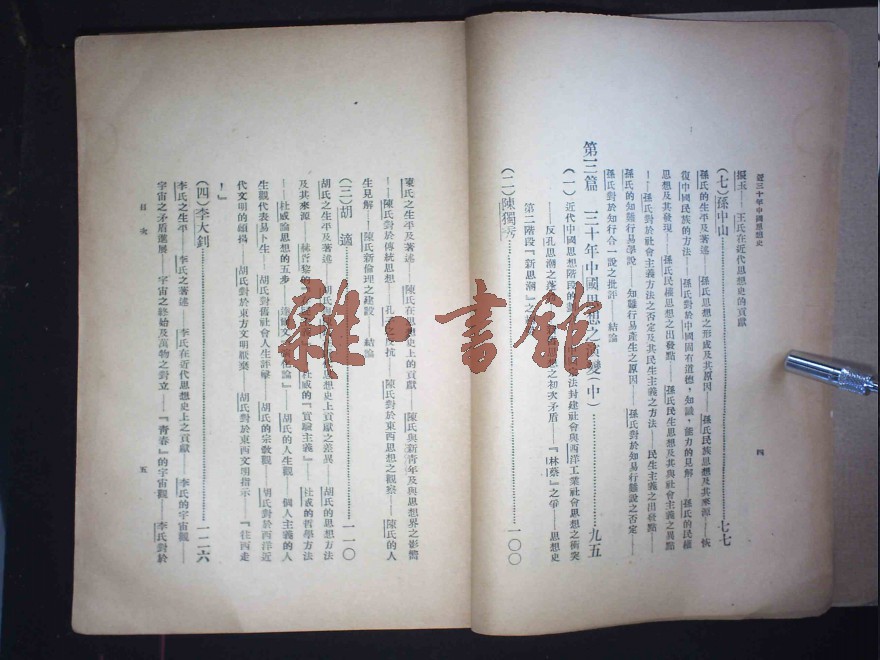 近三十年中國思想史
四
擬玉——王氏在近代思想史的貢獻
(七)孫中山……七七
孫氏的生平及著述——孫氏思想之形成及其原因——孫氏民族思想及其來源——恢
復中國民族的方法——孫氏對於中國固有道德,知識,能力的見解——孫氏的民權
思想及其發現——孫氏民權思想之出發點——孫氏民生思想及其與社會主義之異點
——孫氏對於社會主義方法之否定及其民生主義之方法——民生主義之出發點——
孫氏的知難行易學說——知難行易產生之原因——孫氏對於知易行難說之否定——
孫氏對於知行合一說之批評——結論
第三篇 三十年中國思想之演變(中)……九五
(一)近代中國思想階段的 法封建社會與西洋工業社會思想之衝突
——反孔思潮之 思想之初次矛盾——『林蔡』之爭——思想史
第二階段『新思潮』之
(二)陳獨秀……一〇〇
陳氏之生平及著述——陳氏在思想史上的貢獻——陳氏與新青年及與思想界之影響
——陳氏對於傳統思想——孔 反抗——陳氏對於東西思想之觀察——陳氏的人
生見解——陳氏新倫理之建設——結論
(三)胡適……一一〇
胡氏之生平及著述——胡氏 思想史上貢獻之差異——胡氏的思想方法
及其來源——赫胥黎的 杜威的『實驗主義』——杜威的哲學方法
——杜威論思想的五步 進化論』——胡氏的人生觀——個人主義的人
生觀代表易卜生——胡氏對舊社會人生評擊——胡氏的宗教觀——胡氏對於西洋近
代文明的頌揚——胡氏對於東方文明厭棄——胡氏對於東西文明指示——『往西走
!』
(四)李大釗……一二六
李氏之生平——李氏之著述——李氏在近代思想史上之貢獻——李氏的宇宙觀——
宇宙之矛盾進展——宇宙之終始及萬物之對立——『青春』的宇宙觀——李氏對於
目次
五
雜·書館